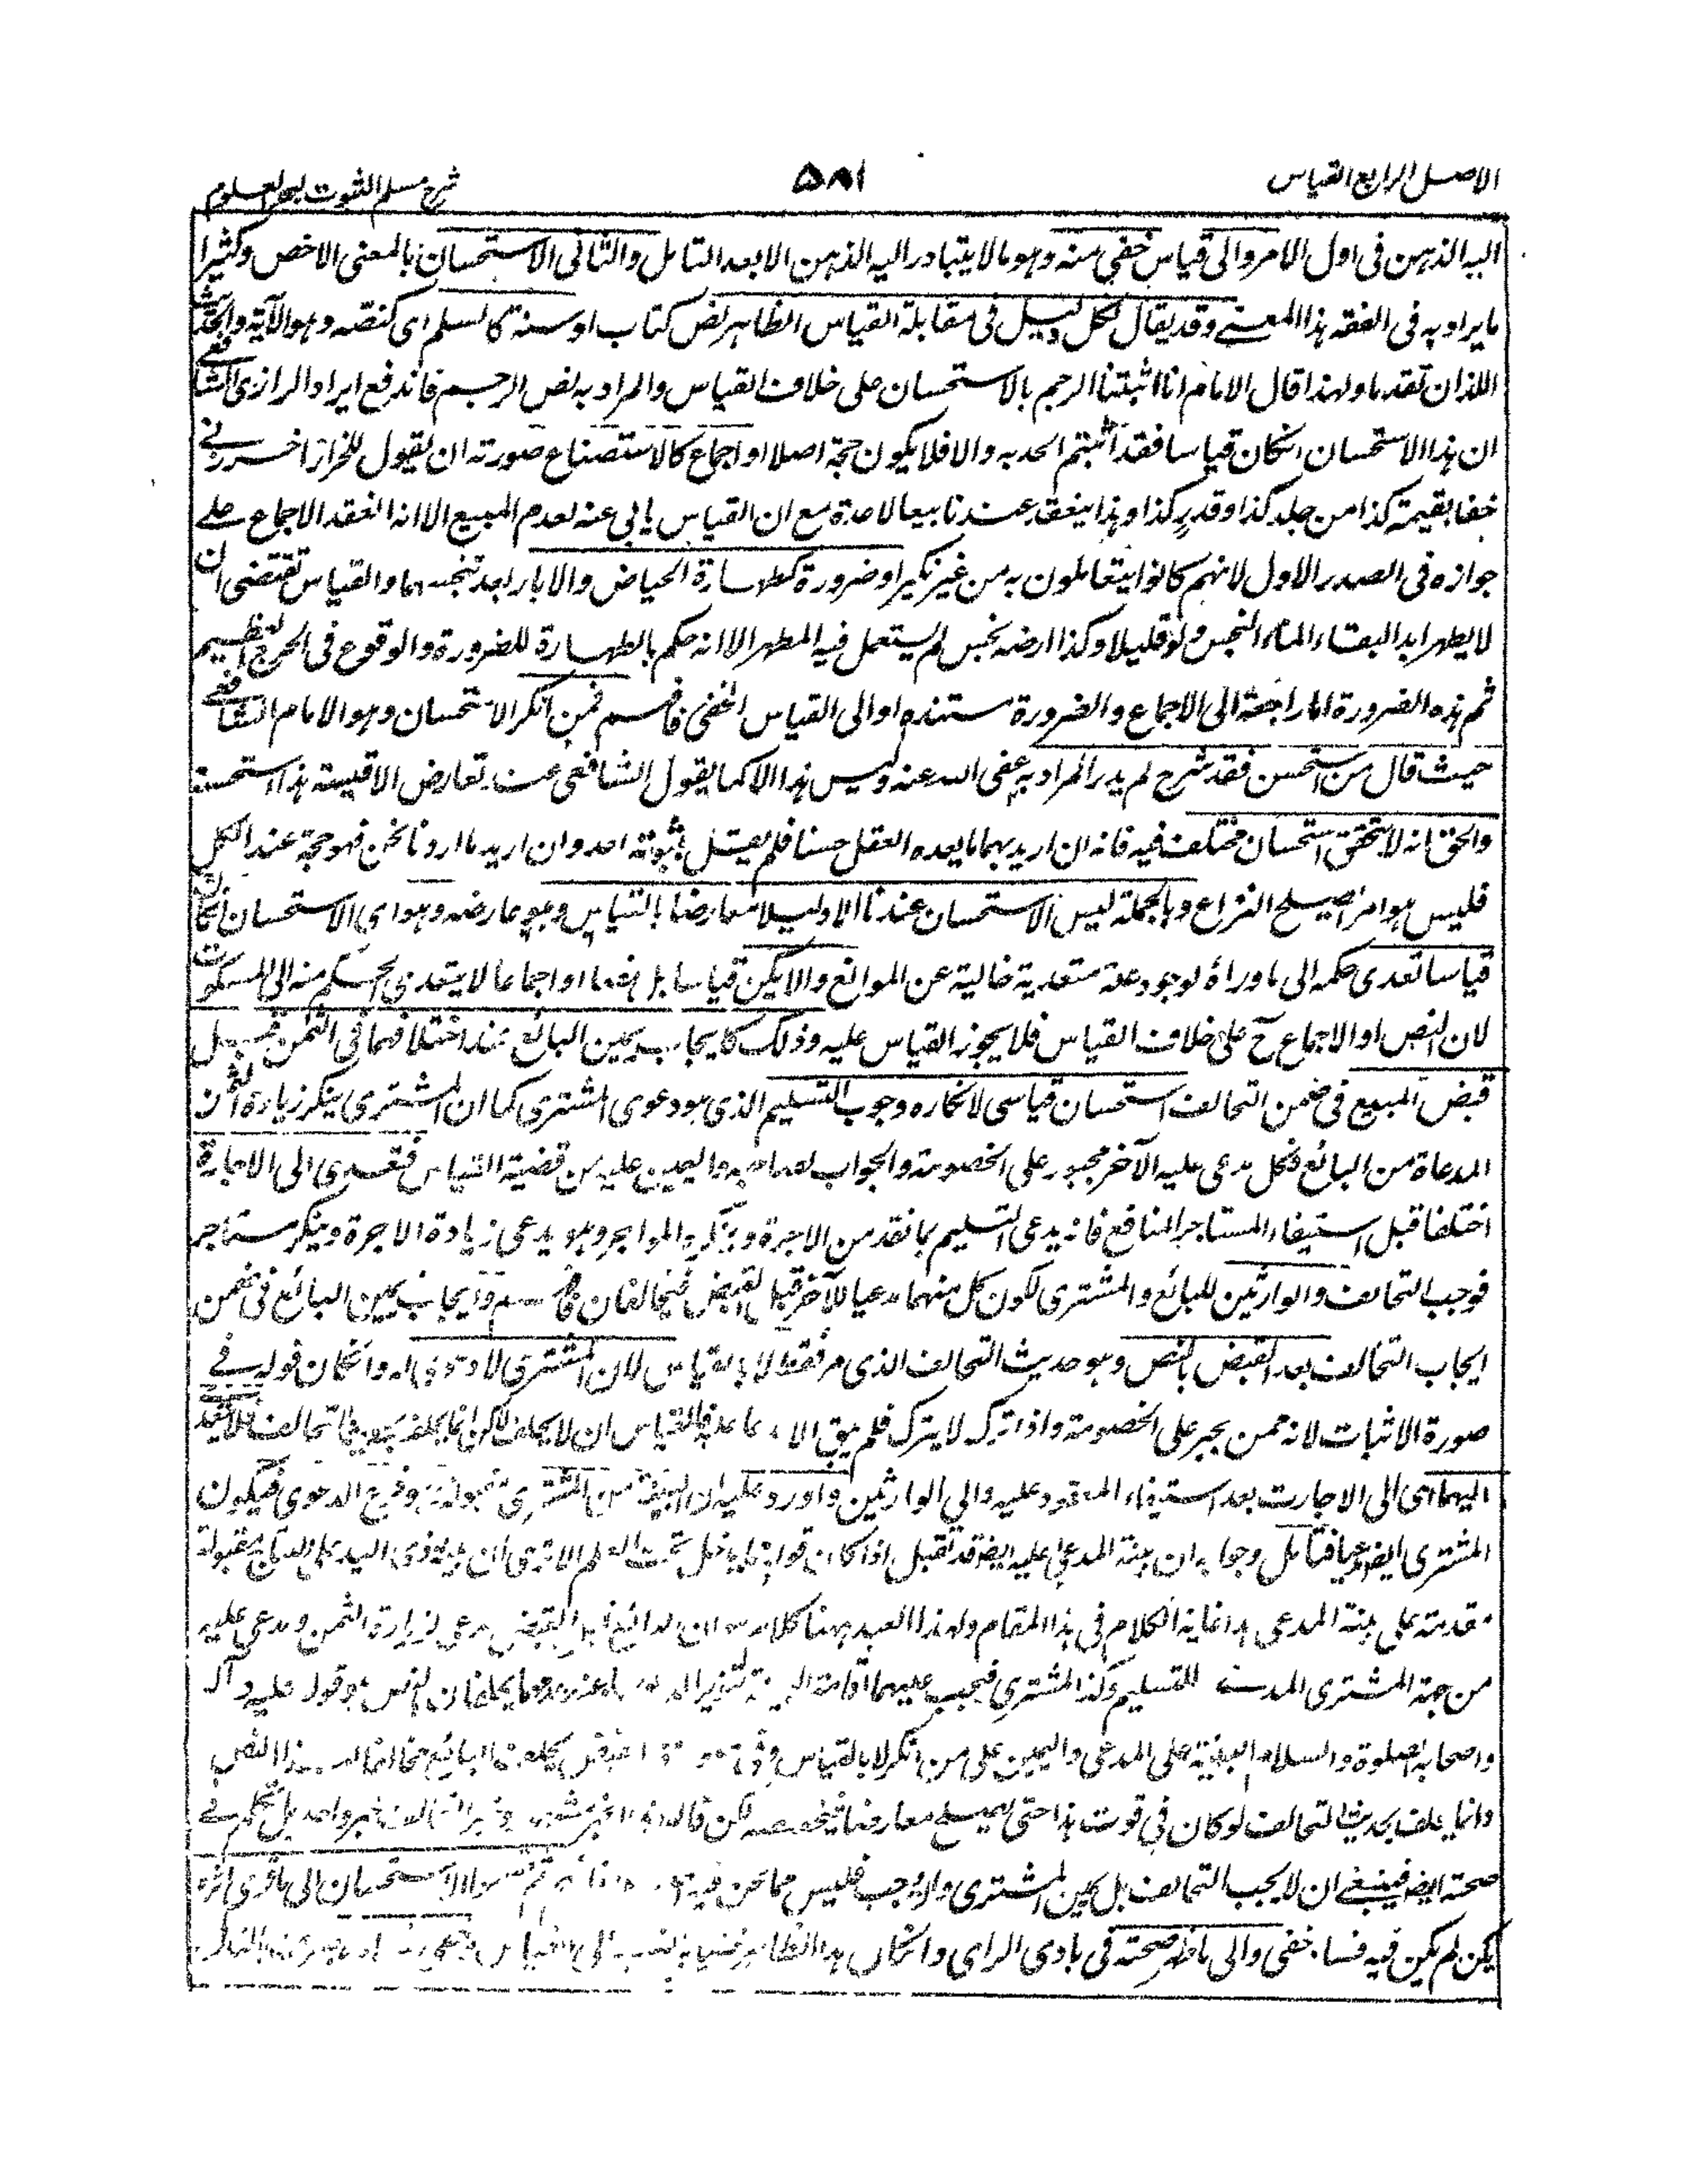 الاصل الرابع القياس
۵۸۱
شرح مسلم الثبوت لبحر العلوم
اليه الذهن فى اول الامر والى قياس خفى منه وهو ما لا يتبادر اليه الذهن الا بعد التامل والثانى الاستحسان بالمعنى الاخص وكثيرا
ما يراد به فى الفقه هذا المعنى وقد يقال لكل دليل فى مقابلة القياس الظاهر نص كتاب او سنة كالسلم اى كنصه وهو الآية والحديث
اللذان تقدما ولهذا قال الامام انا اثبتنا الرجم بالاستحسان على خلاف القياس والمراد به نص الرجم فاندفع ايراد الرازى الشافعى
ان هذا الاستحسان انكان قياسا فقد اثبتم الحد به والا فلا يكون حجة اصلا او اجماع كالاستصناع صورته ان يقول للخراز اخرز لى
خفا بقيمة كذا من جلد كذا وقدر كذا وهذا ينعقد عندنا بيعا لاعدة مع ان القياس يابى عنه لعدم المبيع الا انه انعقد الاجماع على
جوازه فى الصدر الاول لانهم كانوا يتعاملون به من غير نكير او ضرورة كطهارة الحياض والابار بعد تنجسهما والقياس تقتضى ان
لا يطهر ابد البقاء الماء النجس ولو قليلا وكذا ارضه نجس لم يستعمل فيه المطهر الا انه حكم بالطهارة للضرورة والوقوع فى الحرج العظيم
ثم هذه الضرورة اما راجعة الى الاجماع والضرورة مستنده او الى القياس الخفى فافهم فمن انكر الاستحسان وهو الامام الشافعى
حيث قال من استحسن فقد شرع لم يدر المراد به عفى الله عنه وليس هذا الا كما يقول الشافعى عند تعارض الاقيسة هذا استحسنه
والحق انه لا يتحقق استحسان مختلف فيه فانه ان اريد بهما ما يعده العقل حسنا فلم يقل بثبوته احد وان اريد ما اردنا نحن فهو حجة عند الكل
فليس هو امرا يصلح النزاع وبالجملة ليس الاستحسان عندنا الا دليلا معارضا بالقياس وهو عارضه وهو اى الاستحسان انكان
قياسا تعدى حكمه الى ما وراءه لوجود علة متعدية خالية عن الموانع والا يكن قياسا بل نصا او اجماعا لا يتعدى الحكم منه الى المسكوت
لان النص او الاجماع ح على خلاف القياس فلا يجوز القياس عليه وذلك كايجاب يمين البائع عند اختلافهما فى الثمن قبل
قبض المبيع فى ضمن التحالف استحسان قياسى لانكاره وجوب التسليم الذى هو دعوى المشترى كما ان المشترى ينكر زيادة الثمن
المدعاة من البائع فكل مدعى عليه الآخر مجبور على الخصومة والجواب لصاحبه واليمين عليه من قضية القياس فتعدى الى الاجارة
اختلفا قبل استيفاء المستاجر المنافع فانه يدعى التسليم بما نقد من الاجرة وينكره المواجر وهو يدعى زيادة الاجرة وينكر مستاجر
فوجب التحالف والوارثين للبائع والمشترى لكون كل منهما مدعيا للآخر قبل القبض فيتحالفان فافهم وايجاب يمين البائع فى ضمن
ايجاب التحالف بعد القبض بالنص وهو حديث التحالف الذى مر فقط لا بالقياس لان المشترى لا دعوى له وانكان قوله فى
صورة الاثبات لانه ممن يجبر على الخصومة واذا ترك لا يترك فلم يبق الا فالقياس ان لا يحلف لكن انما يحلف التحالف فلا تعدية
اليهما اى الى الاجارت بعد استيفاء المعقود عليه والى الوارثين واورد عليه ان البينة من المشترى مقبولة وفرع الدعوى فيكون
المشترى ايضا مدعيا فتامل وجوابه ان بينة المدعى عليه ايضا قد تقبل اذا كان تحت العلم الا ترى ان بينة ذى اليد على النتاج مقبولة
مقدمة على بينة المدعى هذا غاية الكلام فى هذا المقام ولهذا العبد ههنا كلام هو ان البائع قبل القبض مدعى لزيادة الثمن ومدعى عليه
من جهة المشترى للتسليم وكذا المشترى فيجب عليهما اقامة البينة يحلفان بالنص هو قوله عليه وآله
واصحابه الصلوة والسلام البينة على المدعى واليمين على من انكر لا بالقياس القبض يحلف البائع هذا النص
وانما يحلف بحديث التحالف لو كان فى قوت هذا حتى يصلح معارضا فيخصصه لكن خبر واحد بل تكلم فى
صحته ايضا فينبغى ان لا يجب التحالف بل يمين المشترى ولو وجب فليس مما نحن فيه الاستحسان الى ما قوى اثره
يكن لم يكن فيه فساد خفى والى ما ظهر صحته فى بادى الراى وانكان هذا الظاهر